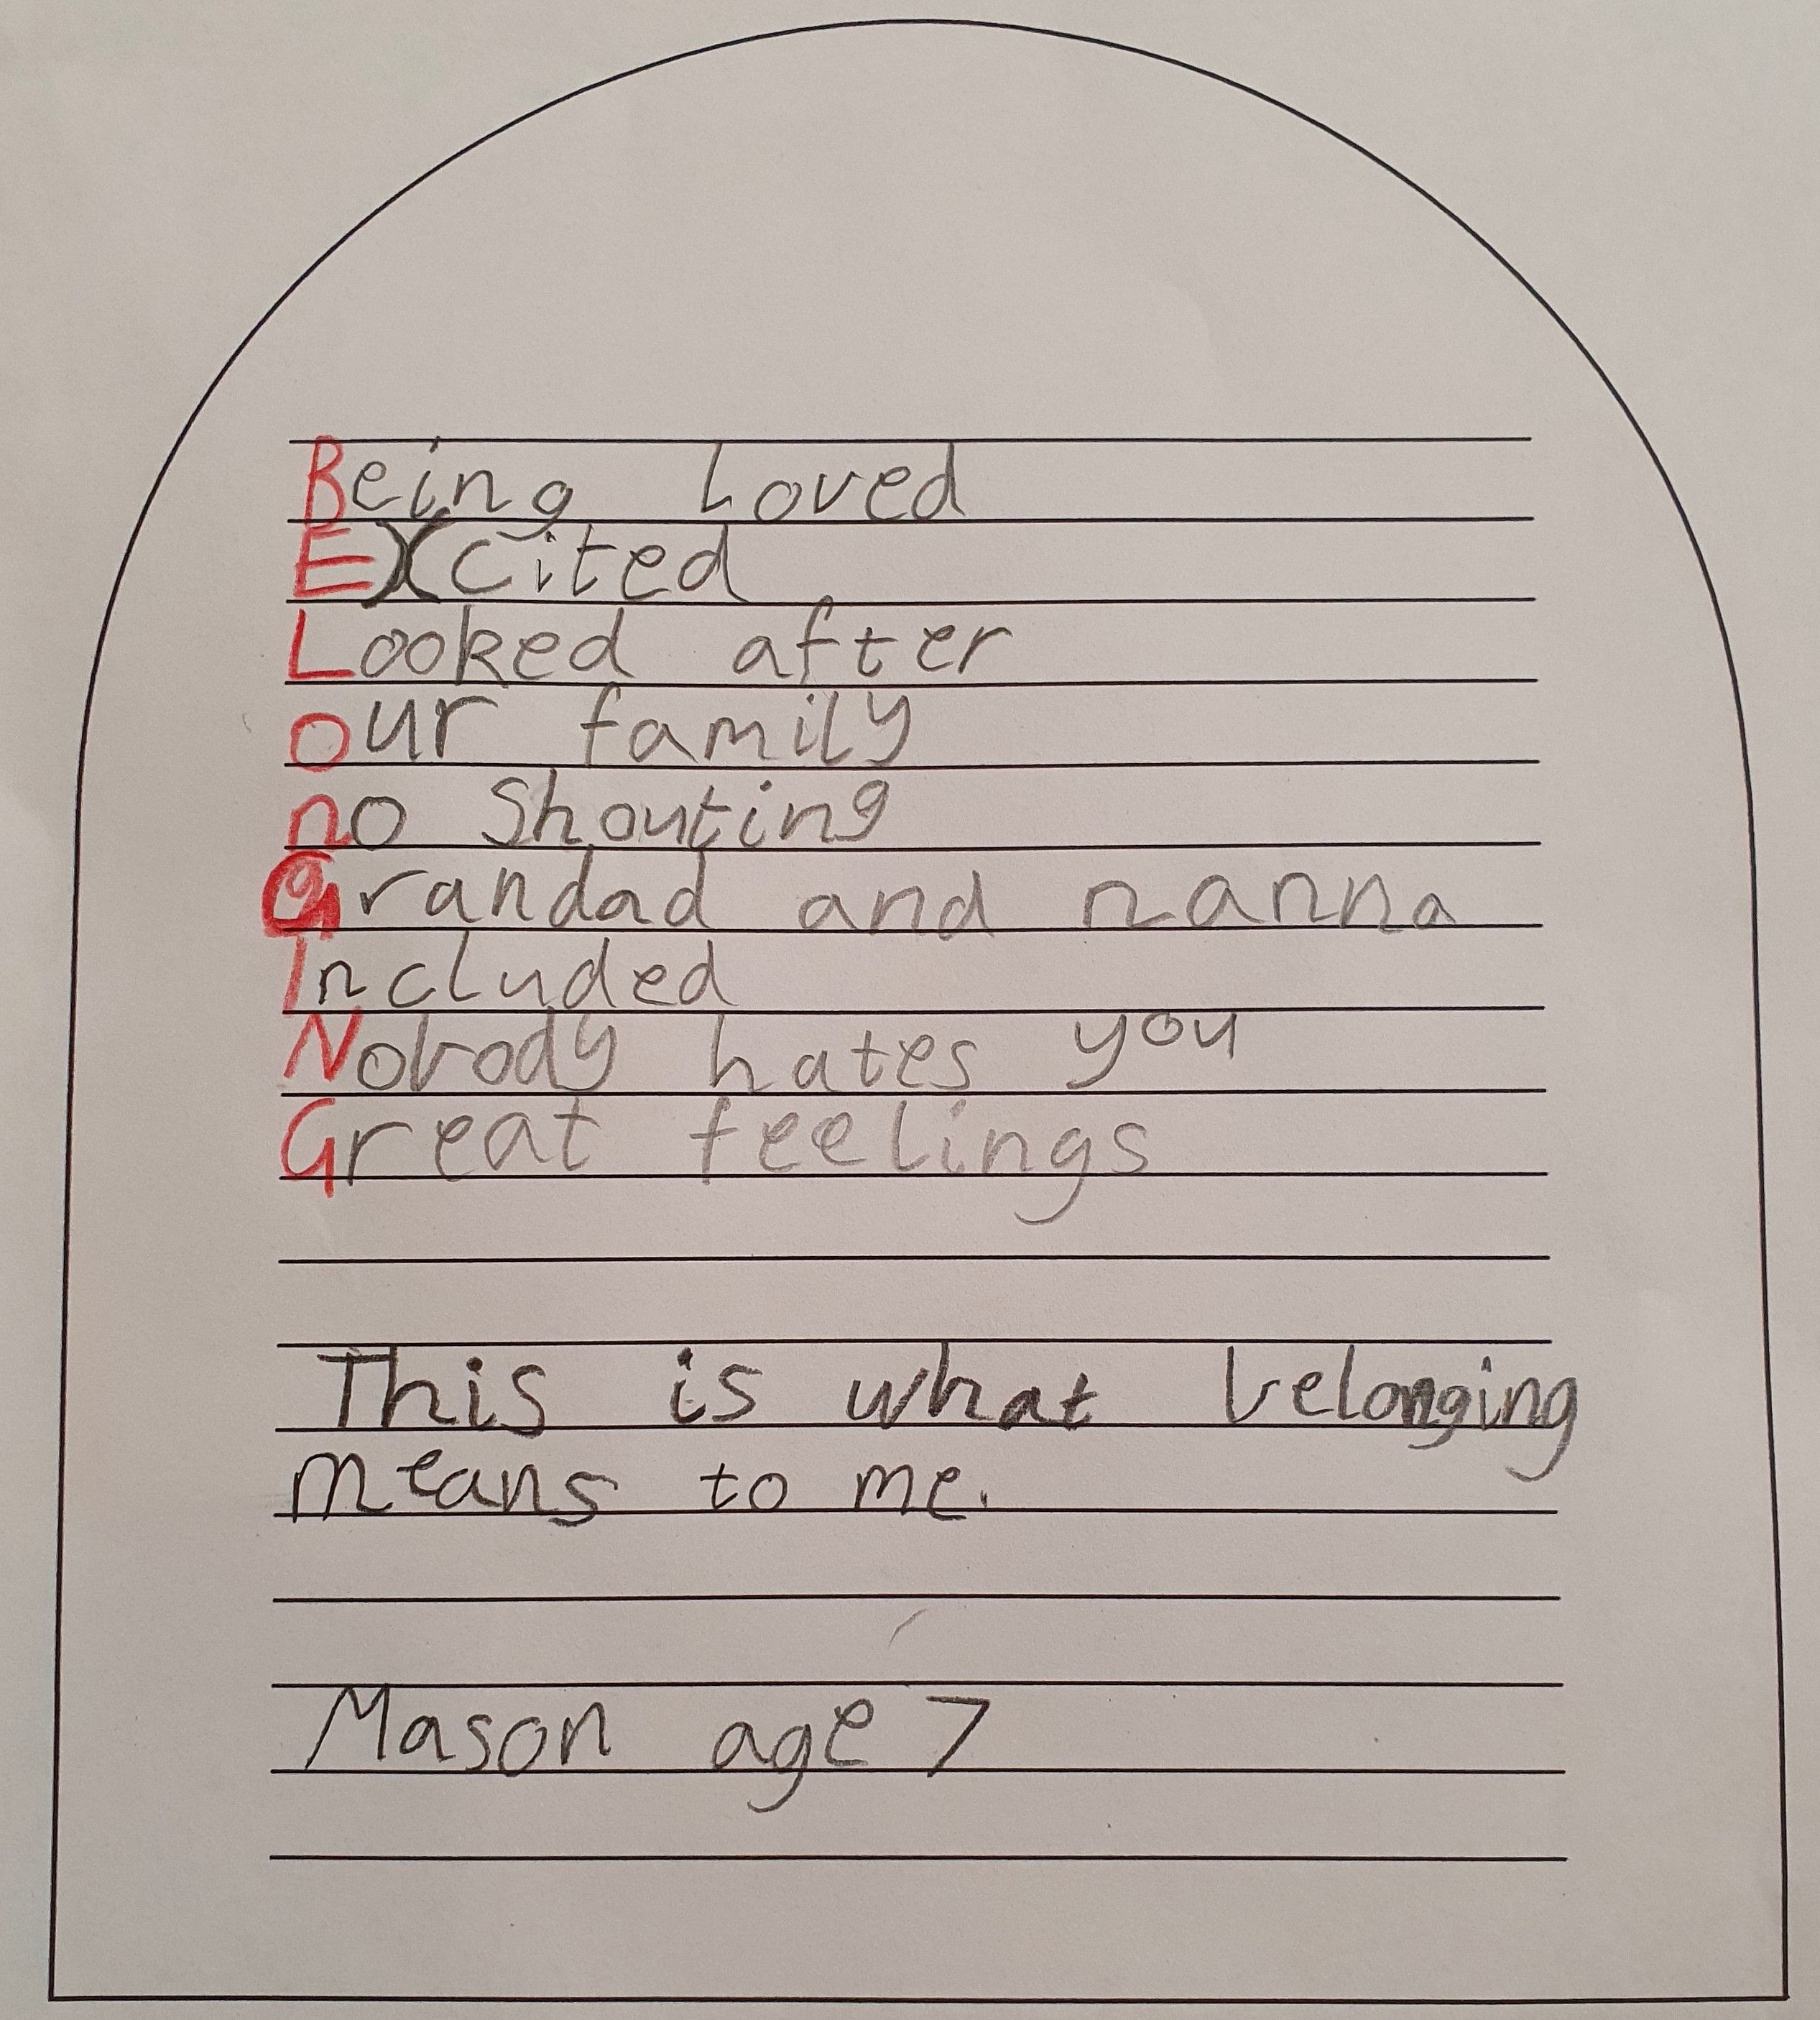 Being Loved
EXcited
Looked after
our family
no Shouting
Grandad and nanna
Included
Nobody hates you
Great feelings
This is what belonging
means to me.
Mason age 7